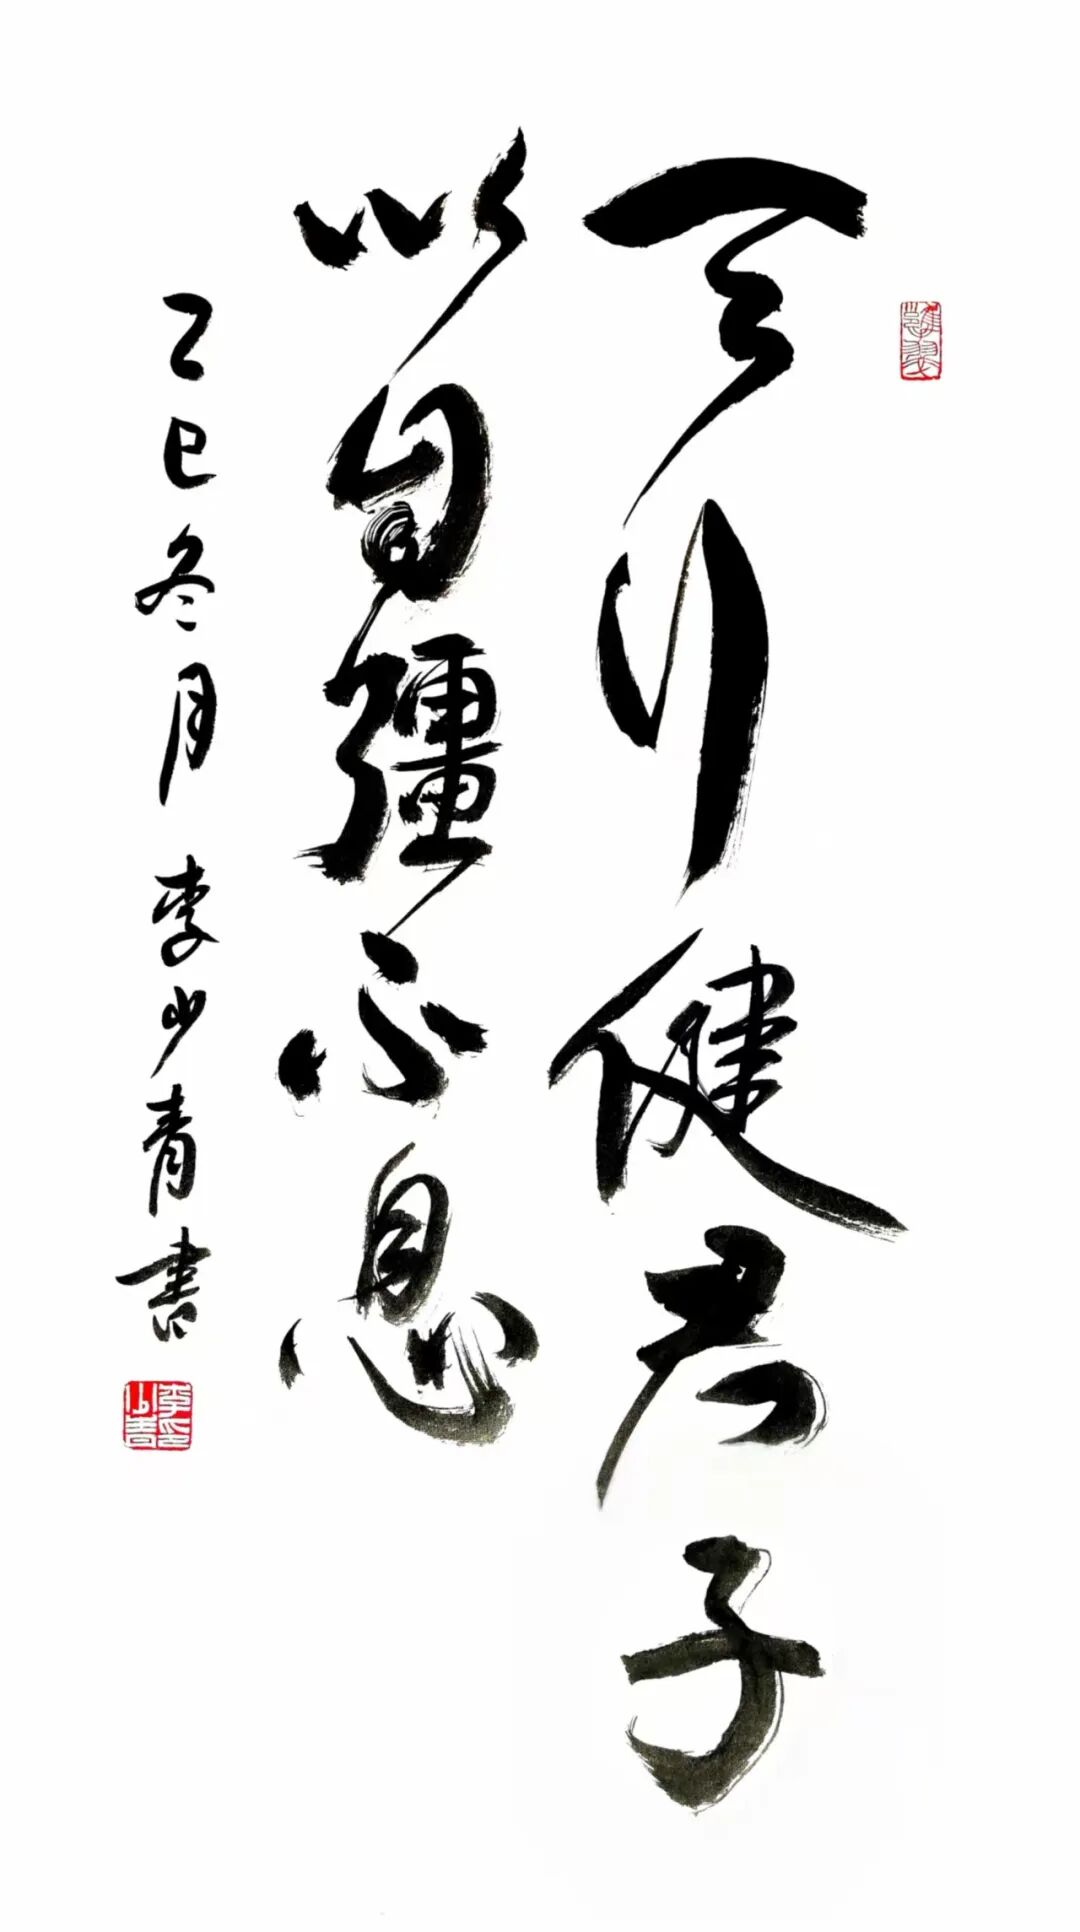 天行健君子
以自彊不息
乙巳冬月李少青書
李少青印